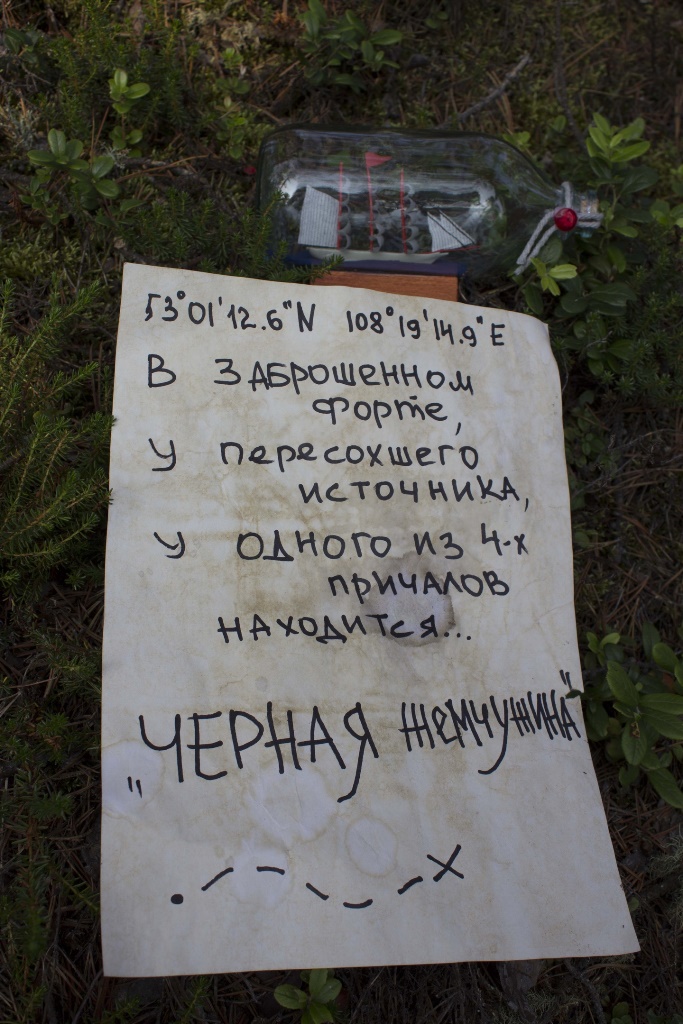 53°01'12.6"N 108°19'14.9"E
В ЗАБРОШЕННОМ
форте,
У пересохшего
источника,
У одного из 4-х
причалов
находится...
„ЧЕРНАЯ ЖЕМЧУЖИНА"